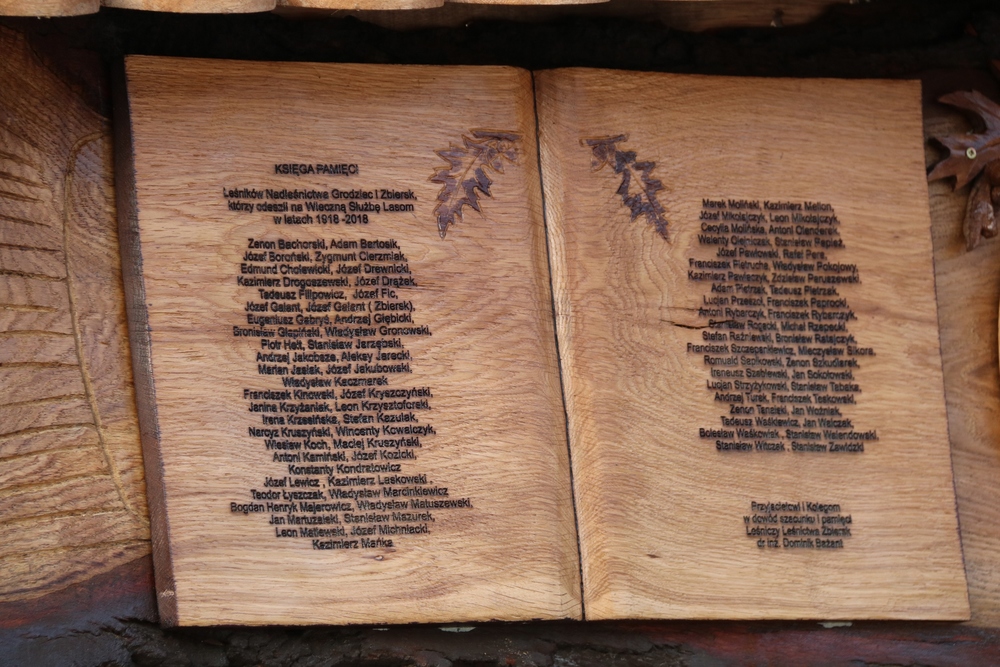 KSIĘGA PAMIĘCI
Leśników Nadleśnictwa Grodziec i Zbiersk,
którzy odeszli na Wieczną Służbę Lasom
w latach 1918 -2018
Zenon Bachorski, Adam Bartosik,
Józef Boroński, Zygmunt Cierzniak,
Edmund Cholewicki, Józef Drewnicki,
Kazimierz Drogoszewski, Józef Drążek,
Tadeusz Filipowicz, Józef Fic,
Józef Galant, Józef Galant ( Zbiersk),
Eugeniusz Gabryś, Andrzej Głębicki,
Bronisław Glapiński, Władysław Gronowski,
Piotr Hatt, Stanisław Jarzębski,
Andrzej Jakobsze, Aleksy Jarecki,
Marian Jasiak, Józef Jakubowski,
Władysław Kaczmarek
Franciszek Kinowski, Józef Kryszczyński,
Janina Krzyżaniak, Leon Krzysztoforski,
Irena Krzesińska, Stefan Kazulak,
Narcyz Kruszyński, Wincenty Kowalczyk,
Wiesław Koch, Maciej Kruszyński,
Antoni Kamiński, Józef Kozicki,
Konstanty Kondratowicz
Józef Lewicz , Kazimierz Laskowski ,
Teodor Łyszczak, Władysław Marcinkiewicz
Bogdan Henryk Majerowicz, Władysław Matuszewski,
Jan Martuzalski, Stanisław Mazurek,
Leon Matlewski, Józef Michniacki,
Kazimierz Mańka
Marek Moliński, Kazimierz Melion,
Józef Mikołajczyk, Leon Mikołajczyk,
Cecylia Molińska, Antoni Olenderek,
Walenty Olejniczak, Stanisław Papież,
Józef Pawłowski, Rafał Pera,
Franciszek Pietrucha, Władysław Pokojowy,
Kazimierz Pawlaczyk, Zdzisław Paruszewski,
Adam Pietrzak, Tadeusz Pietrzak,
Lucjan Przeszol, Franciszek Paprocki,
Antoni Rybarczyk, Franciszek Rybarczyk,
Stanisław Rogacki, Michał Rzepecki,
Stefan Raźniewski, Bronisław Ratajczyk,
Franciszek Szczepankiewicz, Mieczysław Sikora,
Romuald Sepikowski, Zenon Szkudlarek,
Ireneusz Szablewski, Jan Sokołowski,
Lucjan Strzyżykowski, Stanisław Tabaka,
Andrzej Turek, Franciszek Taskowski,
Zenon Tanalski, Jan Woźniak,
Tadeusz Waśkiewicz, Jan Walczak,
Bolesław Waśkowiak , Stanisław Walendowski,
Stanisław Witczak , Stanisław Zawidzki
Przyjacielowi i Kolegom
w dowód szacunku i pamięci
Leśniczy Leśnictwa Zbiersk
dr inż. Dominik Bażant